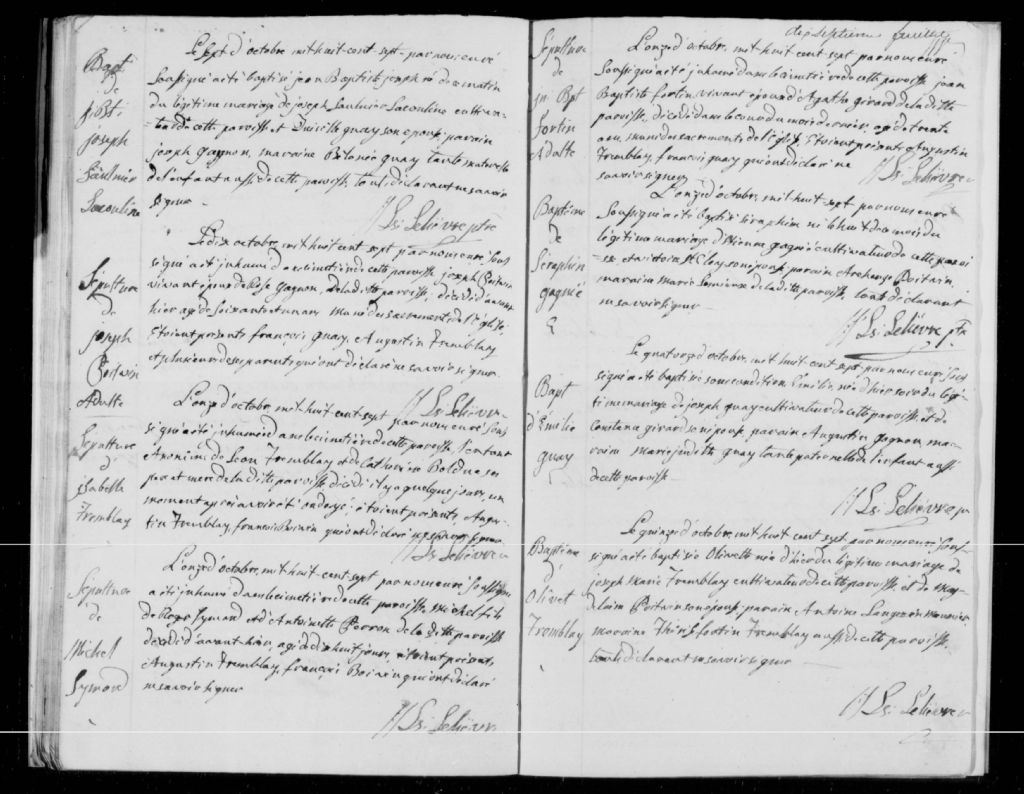 Bapt
de
J. Bt.
joseph
Saulnier
Lacouline
Le sept d'octobre mil huit cent sept par nous curé
soussigné a été baptisé jean Baptiste joseph né ce matin
du légitime mariage de joseph Saulnier Lacouline cultiva-
teur de cette paroisse et quay son épouse parain
joseph Gagnon, maraine quay tante maternelle
de l'enfant aussi de cette paroisse, tous déclarant ne savoir
signer.
Ls. Lelièvre ptre
Sépulture
de
joseph
Poitvin
Adulte
Le dix octobre, mil huit cent sept par nous curé sous
signé a été inhumé dans le cimetière de cette paroisse joseph Poitvin
vivant époux de Rose Gagnon, de la ditte paroisse, décédé d'avant
hier agé de soixante et un ans muni des sacrements de l'église
étoient présents françois Guay, Augustin Tremblay
et plusieurs de ses parents qui ont déclaré ne savoir signer.
Ls. Lelièvre
Sépulture
d
isabelle
Tremblay
L'onze d'octobre, mil huit cent sept par nous curé sous
signé a été inhumé dans le cimetière de cette paroisse, l'enfant
Anonime de Jean Tremblay et de Catherine Bolduc ses
père et mère de la ditte paroisse décédé il y a quelque jours, un
moment après avoir été ondoyé; étoient présents, Augus-
tin Tremblay, françois qui ont déclaré ne savoir signer
Ls. Lelièvre
Sépulture
de
Michel
Symard
L'onze d'octobre, mil huit cent sept par nous curé soussigné
a été inhumé dans le cimetière de cette paroisse Michel fils
de Roger Symard et d'Antoinette Perron de la ditte paroisse
décédé d'avant hier, agé de dix huit jours, étoient présents,
Augustin Tremblay, françois qui ont déclaré
ne savoir signer
Ls. Lelièvre
dix septieme feuillet
Sépulture
de
jn Bpt
fortin
Adulte
L'onze d'octobre, mil huit cent sept par nous curé
soussigné a été inhumé dans le cimetière de cette paroisse jean
Baptiste fortin vivant époux d'Agathe girard de la ditte
paroisse, décédé dans le cour du mois dernier, agé de trente
ans, muni des sacrements de l'église. Etoient présents Augustin
Tremblay, françois quay qui ont déclaré ne
savoir signer
Ls. Lelièvre
Baptême
de
Séraphin
gagné
L'onze d'octobre, mil huit cent sept par nous curé
soussigné a été baptisé séraphin né le huit de ce mois du
légitime mariage d'Etienne gagné cultivateur de cette parroi
sse et de son épouse parain Poitvin,
maraine marie de la ditte paroisse, tous déclarant
ne savoir signer
Ls. Lelièvre ptr.
Bapt
d'Emilie
guay
Le quatorze d'octobre, mil huit cent sept par nous curé sous
signé a été baptisé sous condition Emilie, née d'hier soir du légi-
time mariage de joseph quay cultivateur de cette paroisse et de
girard son épouse, parain Augustin gagnon ma-
raine marie judith quay tante paternelle de l'enfant aussi
de cette paroisse
Ls. Lelièvre
Baptême
d
Olivet
Tremblay
Le quinze d'octobre, mil huit cent sept par nous curé sous-
signé a été baptisée Olivette née d'hier du légitime mariage de
joseph Marie Tremblay cultivateur de cette paroisse et de Mag-
delaine Poitvin son épouse, parain Antoine
maraine Thérèse fortin Tremblay aussi de cette paroisse.
tous déclarant ne savoir signer
Ls. Lelièvre